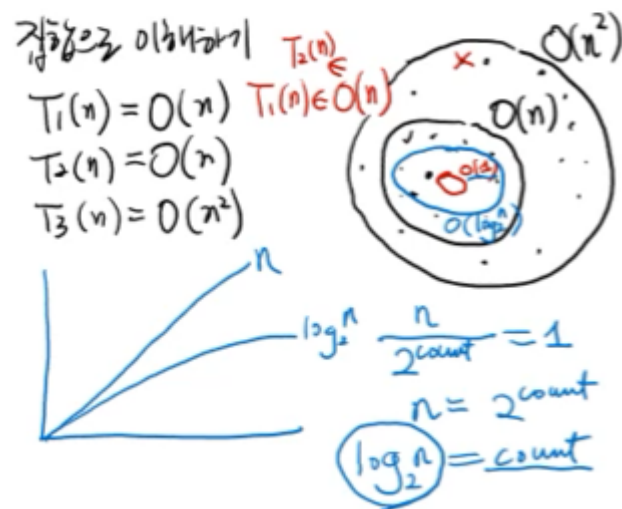 집합으로 이해하기
T₁(n) = O(n)
T₂(n) = O(n)
T₃(n) = O(n²)
T₂(n)
∈
T₁(n) ∈ O(n)
O(n²)
O(n)
O(1)
O(log₂n)
n
log₂n
n / 2^count = 1
n = 2^count
log₂n = count